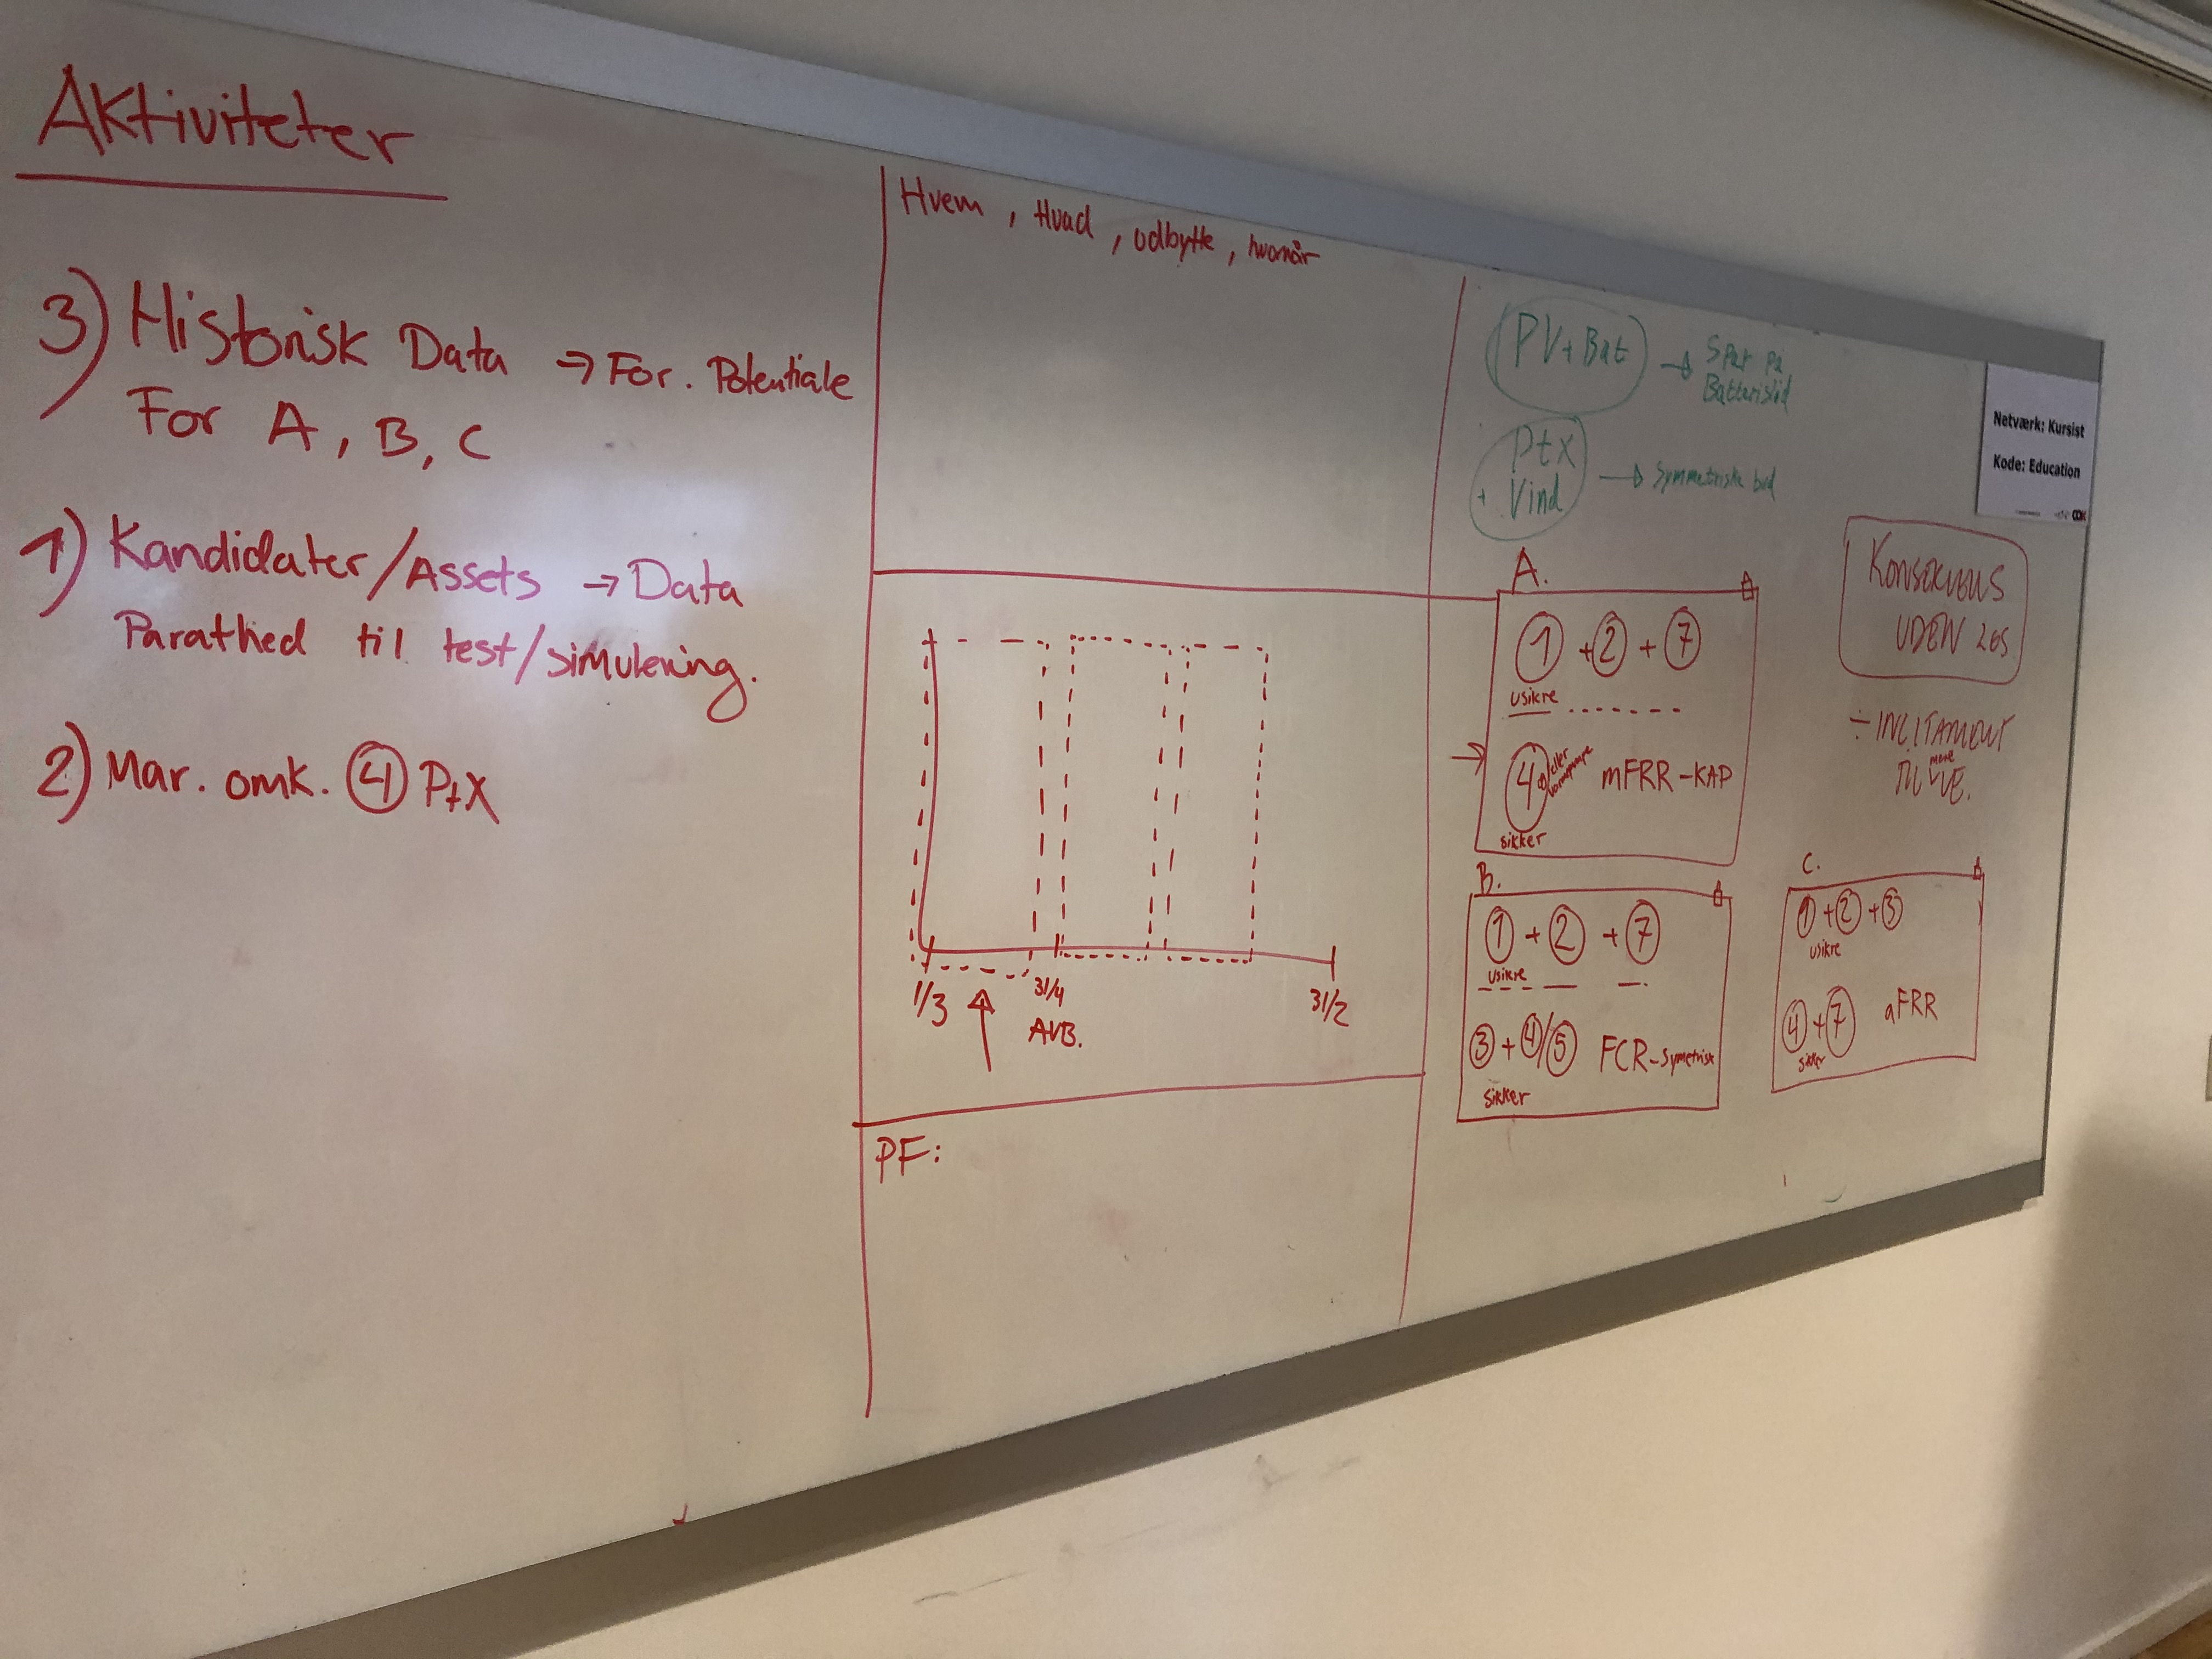 Aktiviteter
3) Historisk Data → For. Potentiale
For A, B, C
1) Kandidater/Assets → Data
Parathed til test/simulering.
2) Mar. omk. ④ PtX
Hvem, Hvad, udbytte, hvornår
1/3
31/4
AVB.
31/2
PF:
PV+Bat → Spar på
Batterislid
Ptx
+ Vind → Symmetriske bud
A.
① + ② + ⑦
usikre
→ ④ eller varmepumpe mFRR-KAP
sikker
B.
① + ② + ⑦
usikre
③ + ④/⑤ FCR-Symetrisk
sikker
C.
① + ② + ③
usikre
④ + ⑦ aFRR
sikker
Netværk: Kursist
Kode: Education
KONSEKVENS
UDEN LØS
÷ INCITAMENT
TIL mere VE.